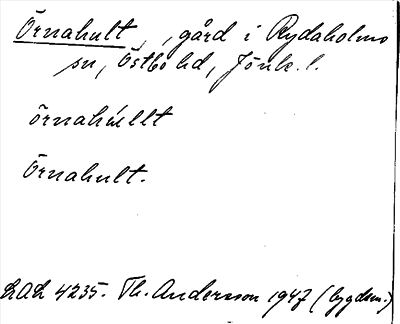 Örnahult, , gård i Rydaholms
sn, Östbo hd, Jönk. l.
örnahúllt
Örnahult.
LAL 4235. Th. Andersson 1947 (bygdem.)